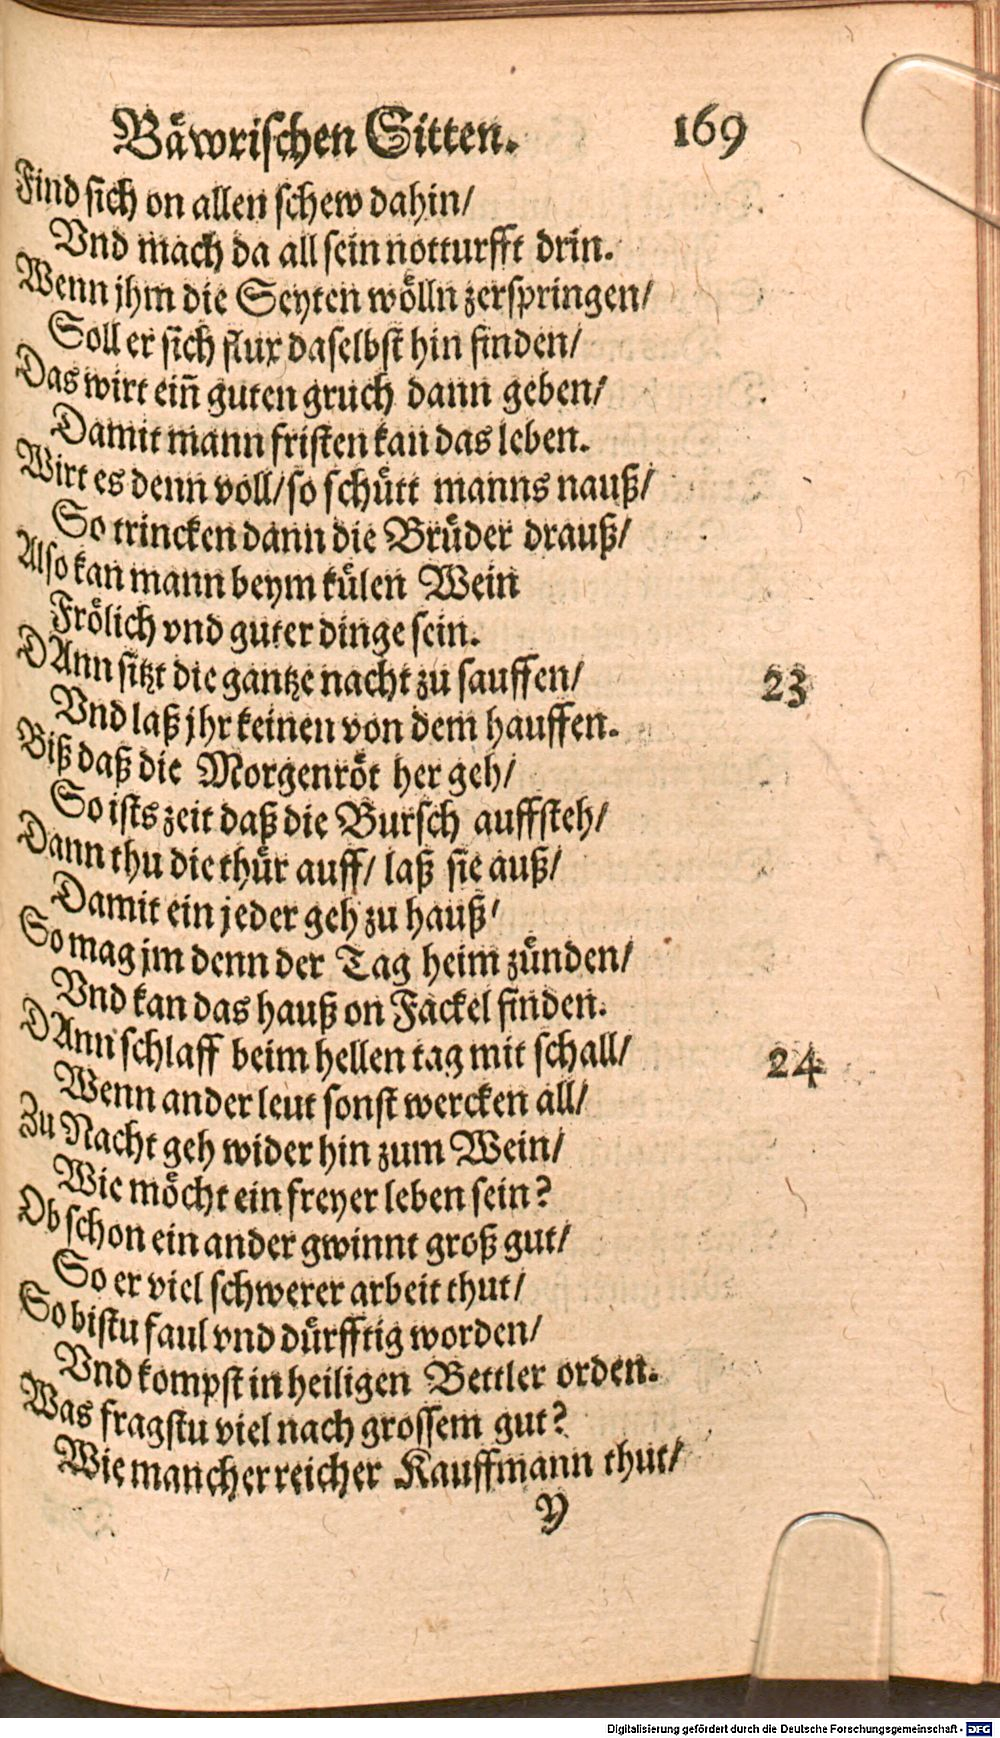 Bäwrischen Sitten. 169
Find sich on allen schew dahin/
Vnd mach da all sein notturfft drin.
Wenn jhm die Seyten wölln zerspringen/
Soll er sich flux daselbst hin finden/
Das wirt eiñ guten gruch dann geben/
Damit mann fristen kan das leben.
Wirt es denn voll/ so schütt manns nauß/
So trincken dann die Brüder drauß/
Also kan mann beym külen Wein
Frölich vnd guter dinge sein.
DAnn sitzt die gantze nacht zu sauffen/ 23
Vnd laß jhr keinen von dem hauffen.
Biß daß die Morgenröt her geh/
So ists zeit daß die Bursch auffsteh/
Dann thu die thür auff/ laß sie auß/
Damit ein jeder geh zu hauß/
So mag jm denn der Tag heim zünden/
Vnd kan das hauß on Fackel finden.
DAnn schlaff beim hellen tag mit schall/ 24
Wenn ander leut sonst wercken all/
Zu Nacht geh wider hin zum Wein/
Wie möcht ein freyer leben sein?
Ob schon ein ander gwinnt groß gut/
So er viel schwerer arbeit thut/
So bistu faul vnd dürfftig worden/
Vnd kompst in heiligen Bettler orden.
Was fragstu viel nach grossem gut?
Wie mancher reicher Kauffmann thut/
Y
Digitalisierung gefördert durch die Deutsche Forschungsgemeinschaft - DFG